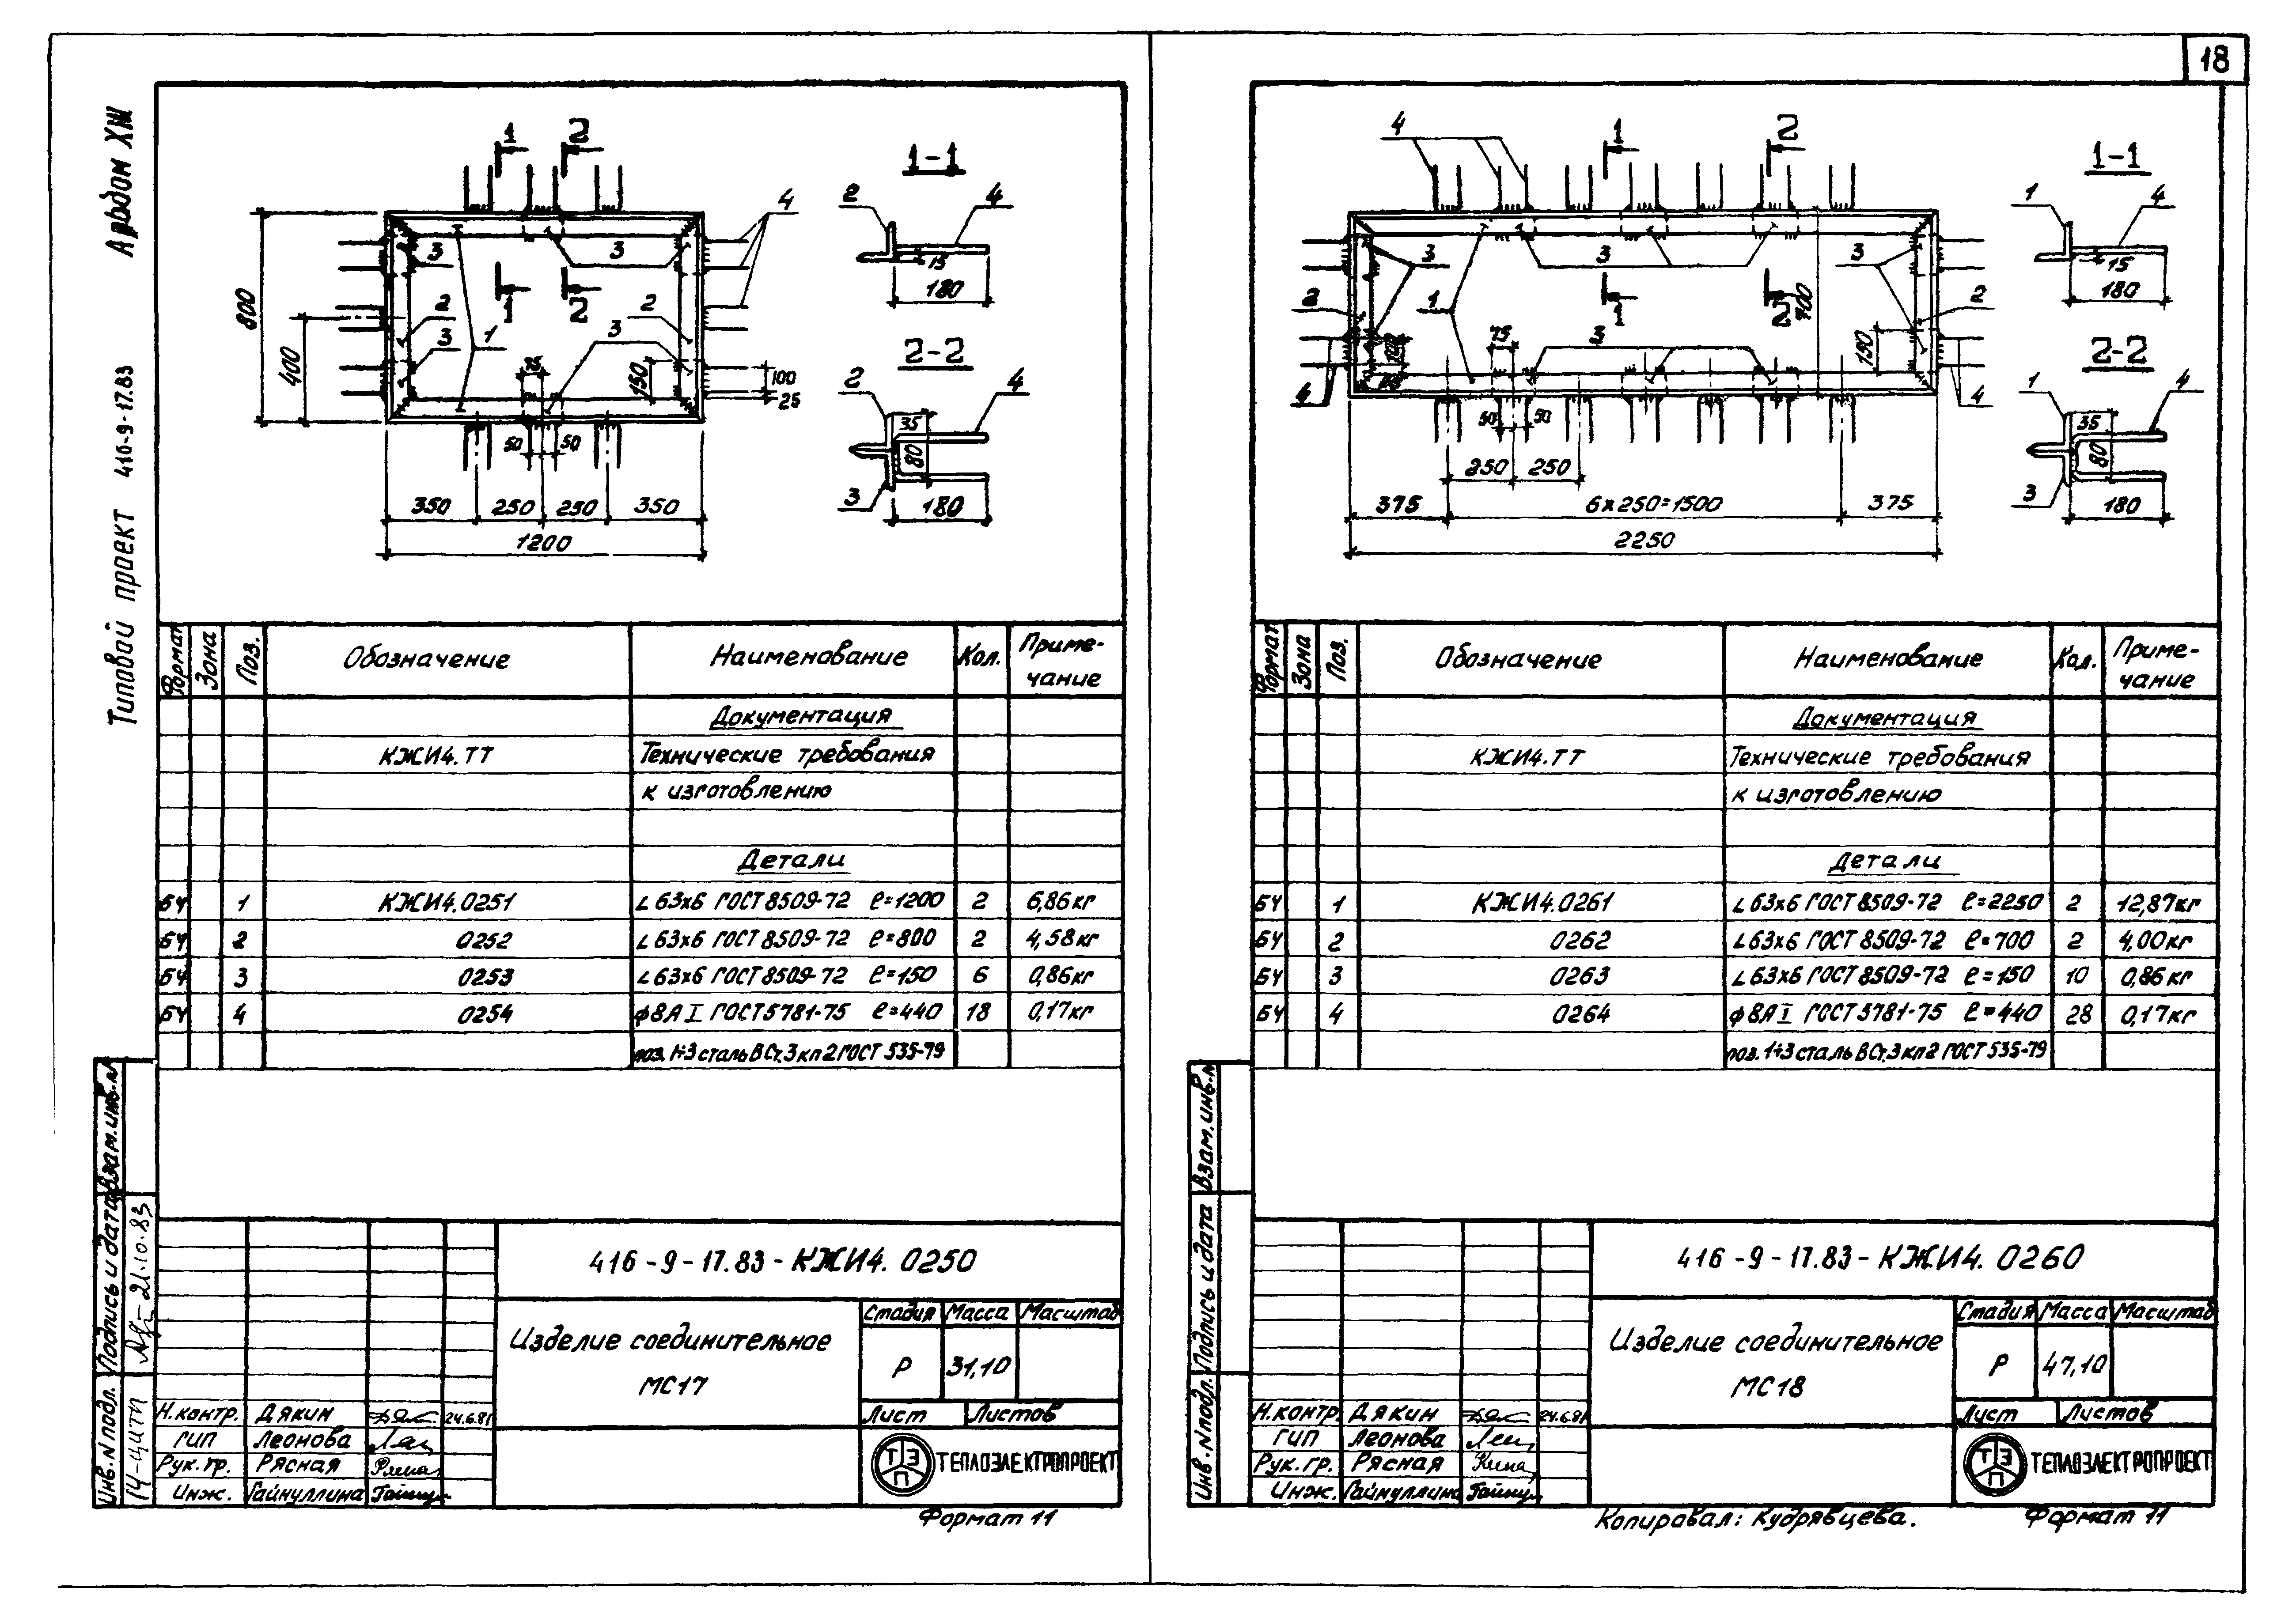 18
Типовой проект 416-9-17.83
1
2
1-1
2
4
15
180
2-2
2
4
35
80
3
180
4
3
3
2
3
1
2
3
800
400
75
150
100
25
50
50
350
250
250
350
1200
Формат
Зона
Поз.
Обозначение
Наименование
Кол.
Приме-
чание
Документация
КЖИ4.ТТ
Технические требования
к изготовлению
Детали
БЧ 1 КЖИ4.0251 L 63х6 ГОСТ 8509-72 ℓ=1200 2 6,86кг
БЧ 2 0252 L 63х6 ГОСТ 8509-72 ℓ=800 2 4,58кг
БЧ 3 0253 L 63х6 ГОСТ 8509-72 ℓ=150 6 0,86кг
БЧ 4 0254 ф8АI ГОСТ 5781-75 ℓ=440 18 0,17кг
поз. 1÷3 сталь ВСт.3кп2 ГОСТ 535-79
Взам.инв.N
Подпись и дата
21.10.83
Инв.N подл.
416-9-17.83-КЖИ4.0250
Изделие соединительное
МС17
Стадия Масса Масштаб
Р 31,10
Лист Листов
ТЭП
ТЕПЛОЭЛЕКТРОПРОЕКТ
Н.контр. Дякин 24.6.81
ГИП Леонова
Рук.гр. Рясная
Инж. Гайнуллина
Формат 11
4
1
2
1-1
1
4
15
180
2-2
1
4
35
80
3
180
3
3
3
2
1
2
700
75
3
100
150
4
4
50
50
250
250
375
6х250=1500
375
2250
Формат
Зона
Поз.
Обозначение
Наименование
Кол.
Приме-
чание
Документация
КЖИ4.ТТ
Технические требования
к изготовлению
Детали
БЧ 1 КЖИ4.0261 L 63х6 ГОСТ 8509-72 ℓ=2250 2 12,87кг
БЧ 2 0262 L 63х6 ГОСТ 8509-72 ℓ=700 2 4,00кг
БЧ 3 0263 L 63х6 ГОСТ 8509-72 ℓ=150 10 0,86кг
БЧ 4 0264 ф8АI ГОСТ 5781-75 ℓ=440 28 0,17кг
поз. 1÷3 сталь ВСт.3кп2 ГОСТ 535-79
Взам.инв.N
Подпись и дата
Инв.N подл.
416-9-17.83-КЖИ4.0260
Изделие соединительное
МС18
Стадия Масса Масштаб
Р 47,10
Лист Листов
ТЭП
ТЕПЛОЭЛЕКТРОПРОЕКТ
Н.контр. Дякин 24.6.81
ГИП Леонова
Рук.гр. Рясная
Инж. Гайнуллина
Копировал: Кудрявцева.
Формат 11